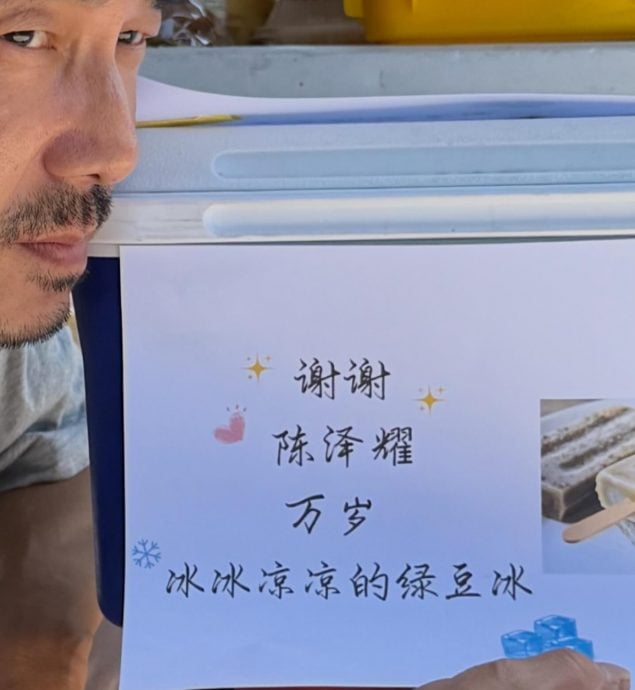 谢谢
陈泽耀
万岁
冰冰凉凉的绿豆冰